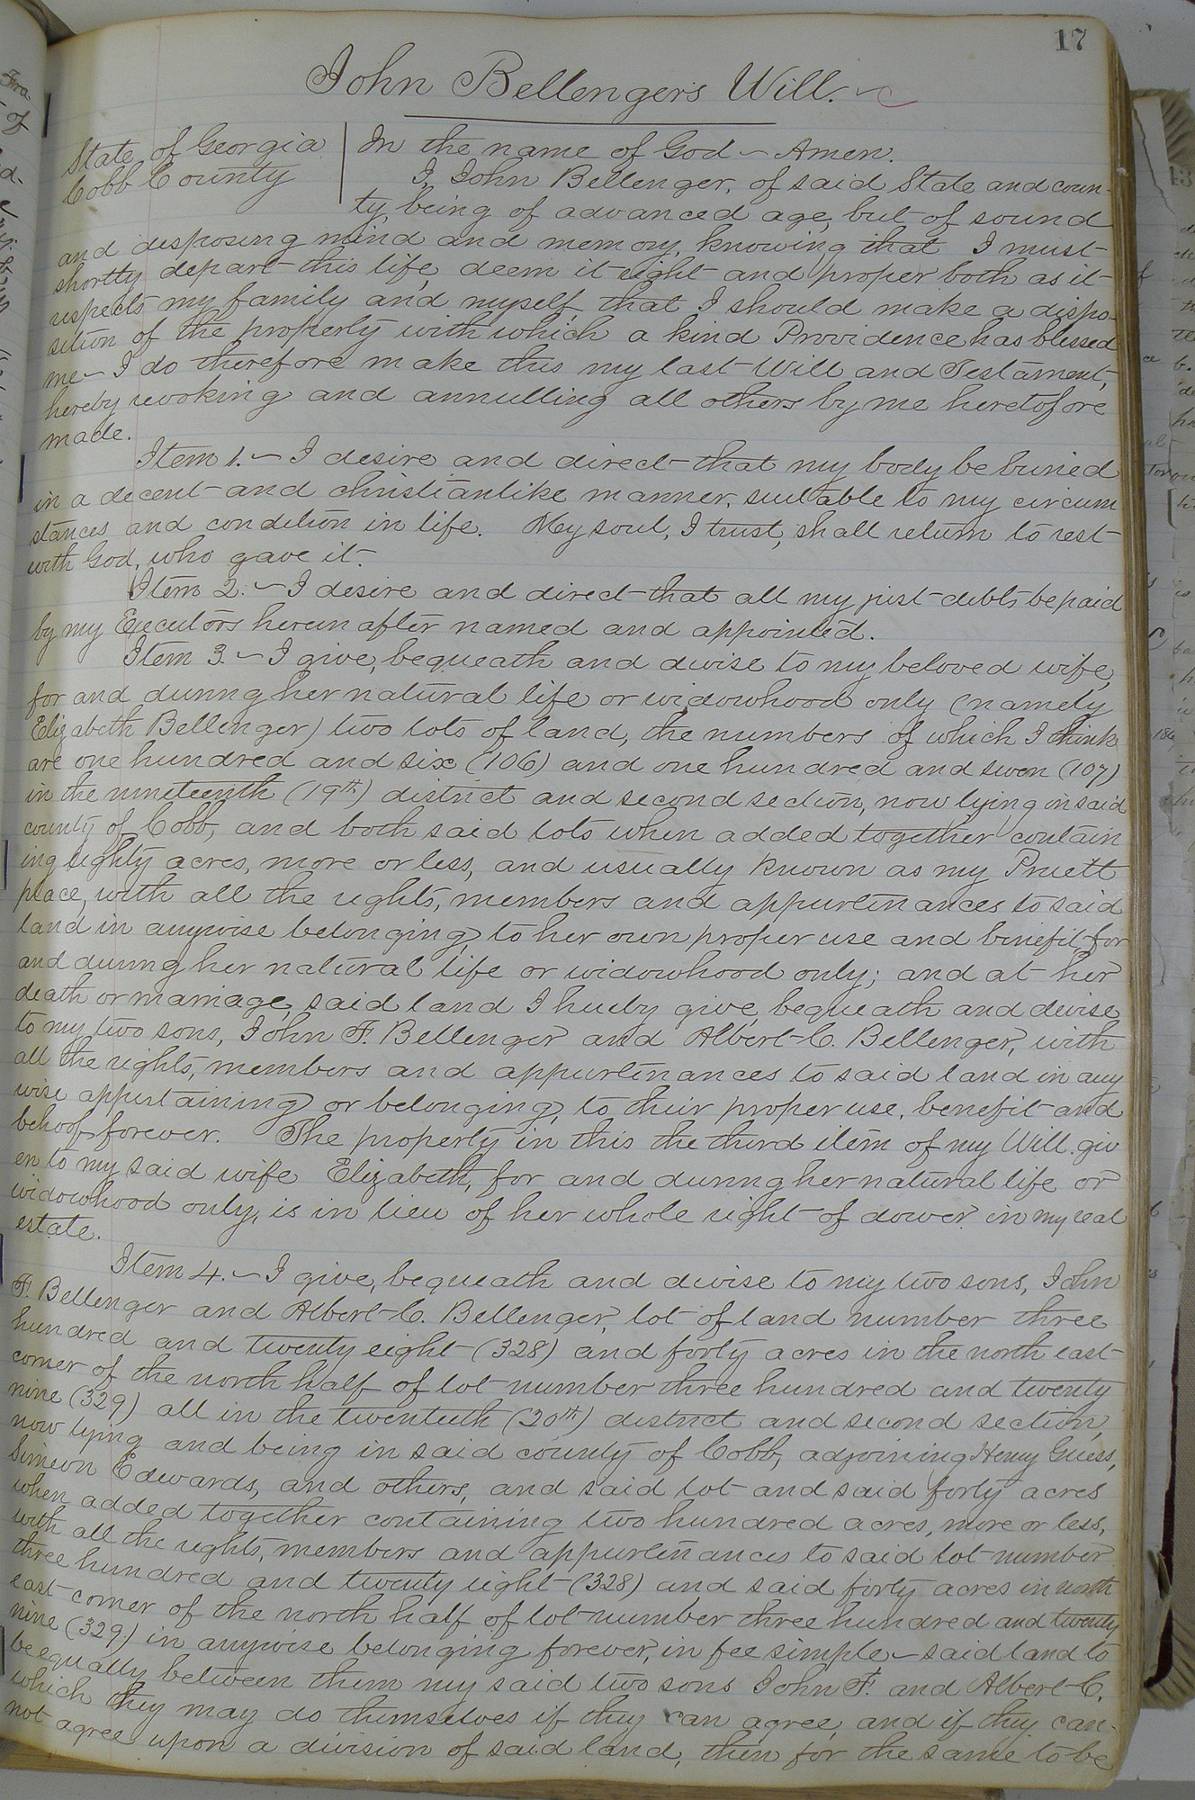 17
John Bellengers Will.
State of Georgia
Cobb County
In the name of God - Amen.
I, John Bellenger, of said State and coun-
ty, being of advanced age, but of sound
and disposing mind and memory, knowing that I must
shortly depart this life, deem it right and proper both as it
respects my family and myself, that I should make a dispo-
sition of the property with which a kind Providence has blessed
me - I do therefore make this my last Will and Testament,
hereby revoking and annulling all others by me heretofore
made.
Item 1. - I desire and direct that my body be buried
in a decent and christianlike manner, suitable to my circum
stances and condition in life. My soul, I trust, shall return to rest
with God, who gave it.
Item 2. - I desire and direct that all my just debts be paid
by my Executors herein after named and appointed.
Item 3. - I give, bequeath and devise to my beloved wife,
for and during her natural life or widowhood only (namely
Elizabeth Bellenger) two lots of land, the numbers of which I think
are one hundred and six (106) and one hundred and seven (107)
in the nineteenth (19th) district and second section, now lying in said
county of Cobb, and both said lots when added together contain
ing eighty acres, more or less, and usually known as my Pruett
place, with all the rights, members and appurtenances to said
land in anywise belonging to her own proper use and benefit for
and during her natural life or widowhood only; and at her
death or marriage, said land I hereby give, bequeath and devise
to my two sons, John F. Bellenger and Albert C. Bellenger, with
all the rights, members and appurtenances to said land in any
wise appertaining or belonging, to their proper use, benefit and
behoof forever. The property in this the third item of my Will giv
en to my said wife Elizabeth, for and during her natural life or
widowhood only, is in lieu of her whole right of dower in my real
estate.
Item 4. - I give, bequeath and devise to my two sons, John
F. Bellenger and Albert C. Bellenger, lot of land number three
hundred and twenty eight (328) and forty acres in the north east
corner of the north half of lot number three hundred and twenty
nine (329) all in the twentieth (20th) district and second section,
now lying and being in said county of Cobb, adjoining Henry Guess,
Simeon Edwards, and others, and said lot and said forty acres
when added together containing two hundred acres, more or less,
with all the rights, members and appurtenances to said lot number
three hundred and twenty eight (328) and said forty acres in north
east corner of the north half of lot number three hundred and twenty
nine (329) in anywise belonging forever, in fee simple - said land to
be equally between them my said two sons John F. and Albert C.
which they may do themselves if they can agree, and if they can-
not agree upon a division of said land, then for the same to be